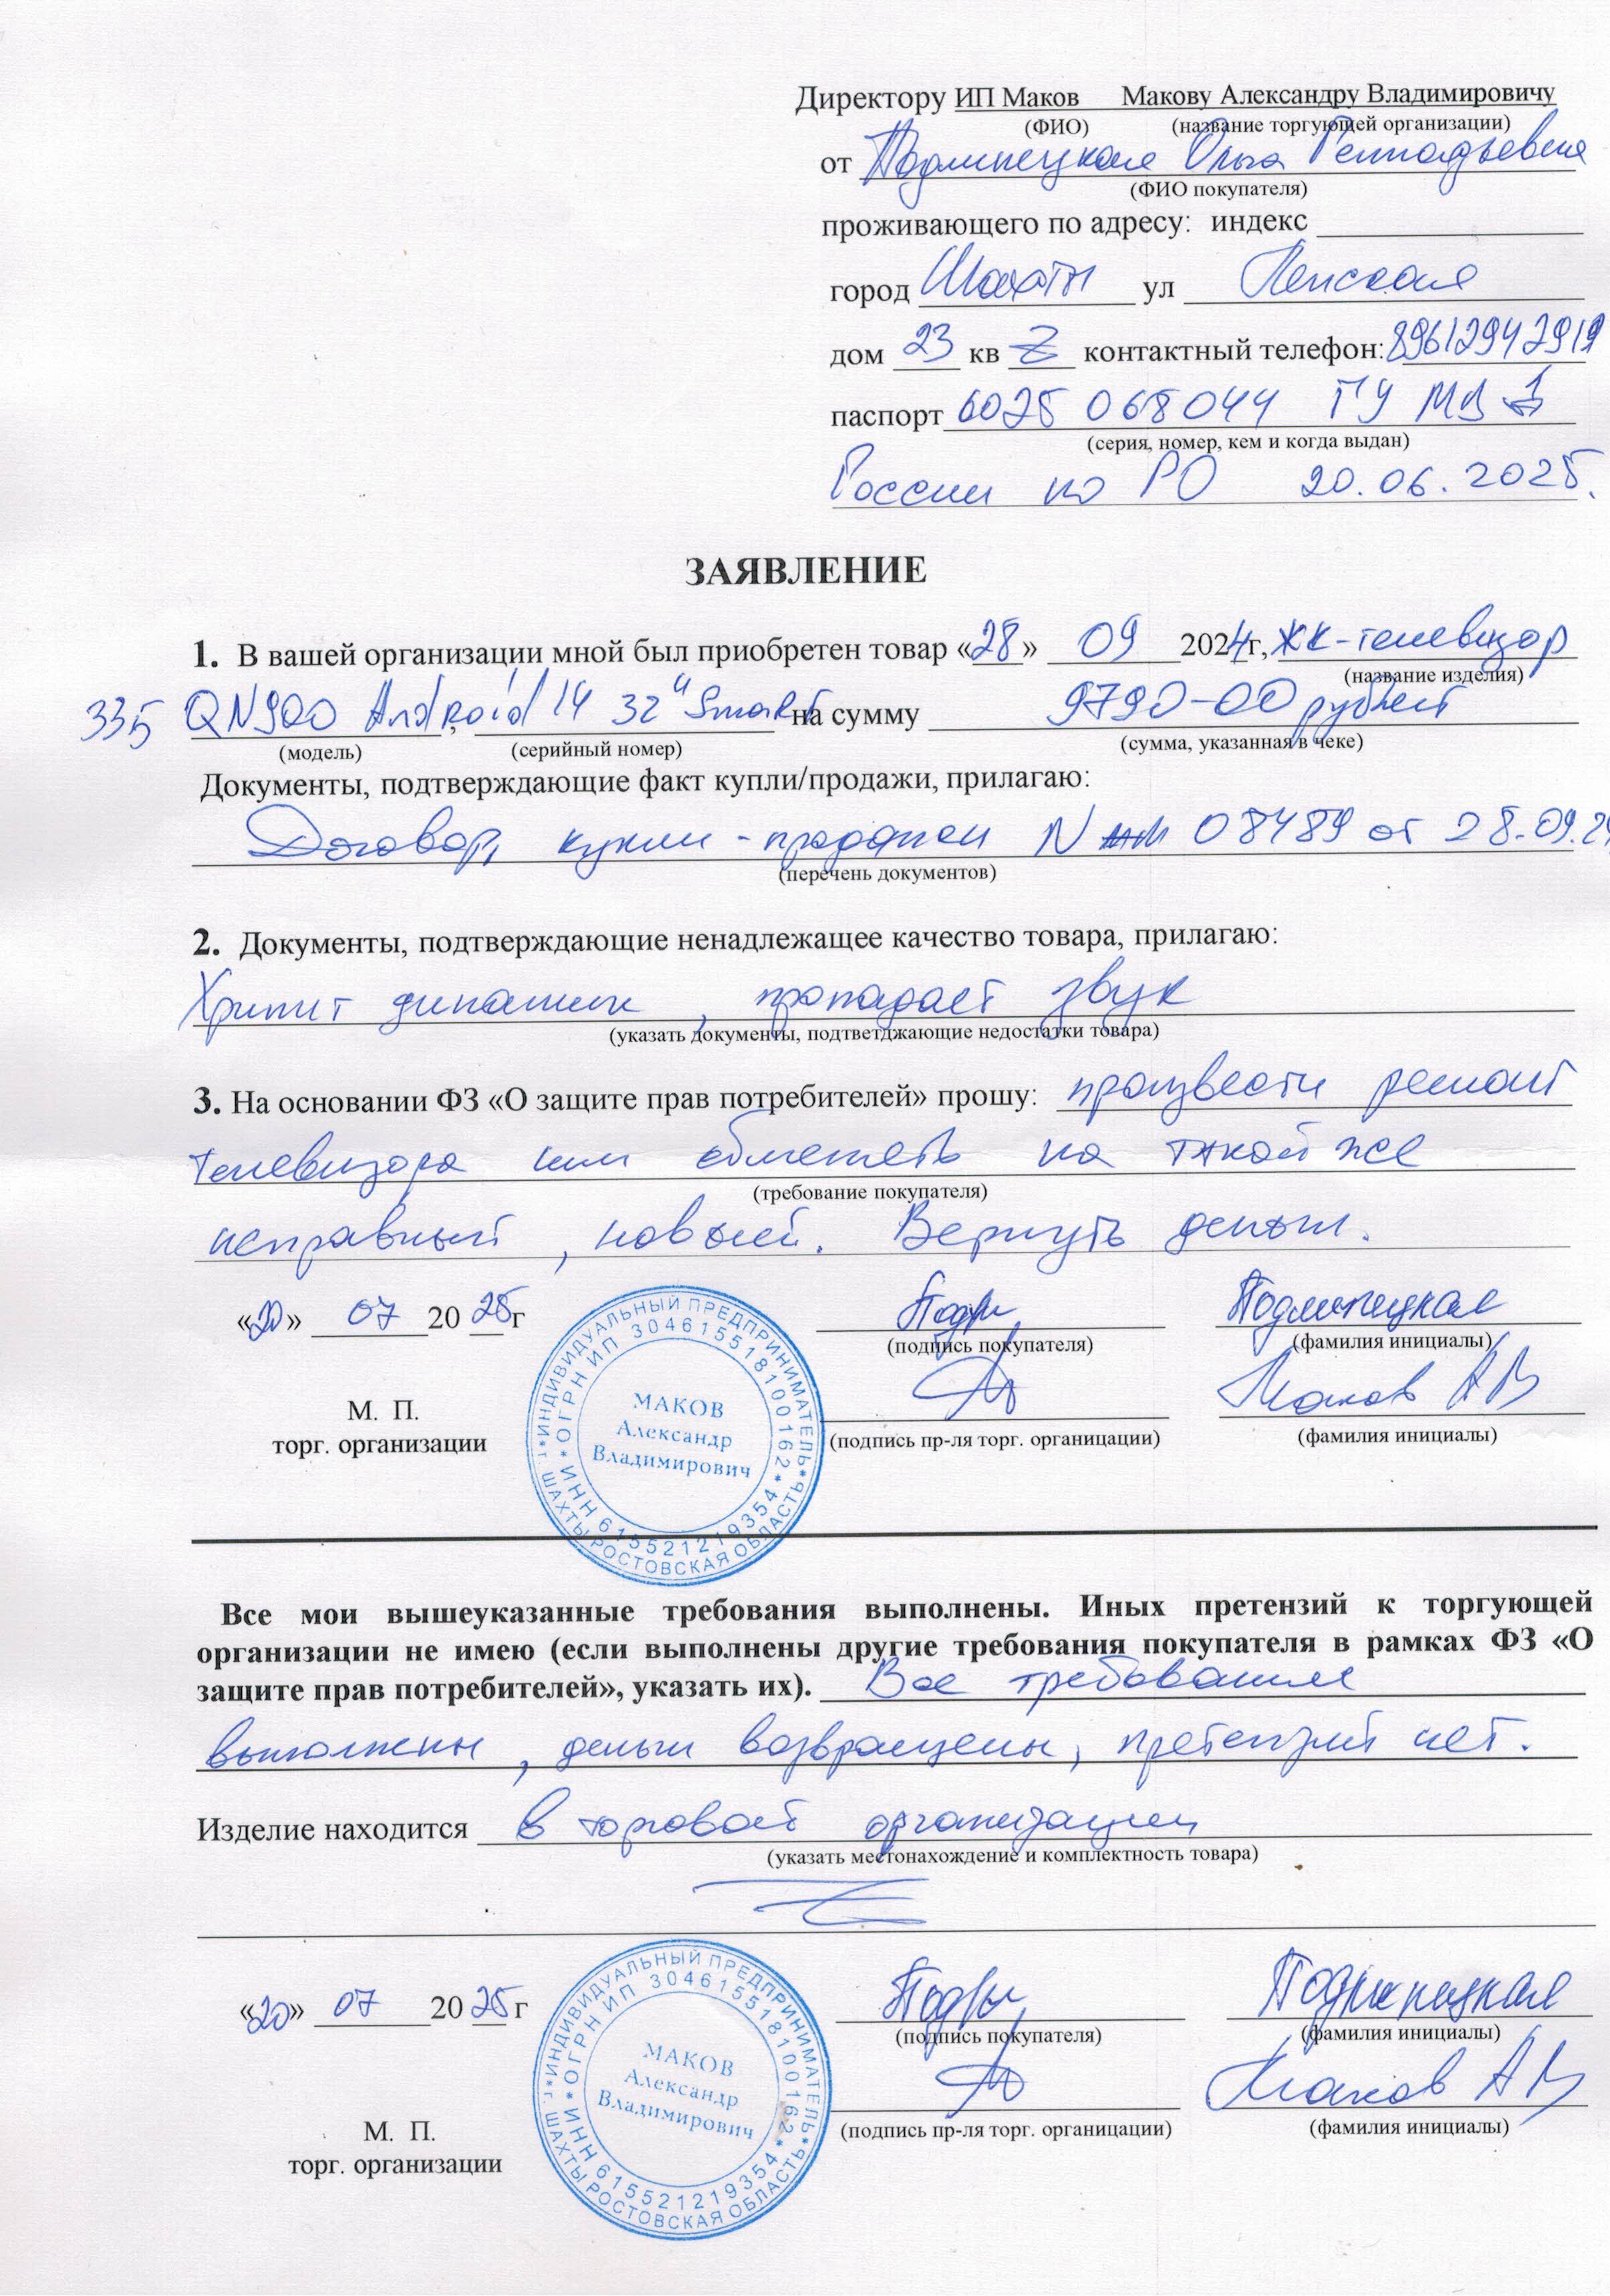 Директору ИП Маков Макову Александру Владимировичу
(ФИО) (название торгующей организации)
от Подлипецкая Ольга Геннадьевна
(ФИО покупателя)
проживающего по адресу: индекс
город Шахты ул Ленская
дом 23 кв контактный телефон:
паспорт 6025 068044 ГУ МВД
(серия, номер, кем и когда выдан)
России по РО 20.06.2025.
ЗАЯВЛЕНИЕ
1. В вашей организации мной был приобретен товар «28» 09 2024г, ЖК-телевизор
(название изделия)
335 QN900 Android 14 32" Smart на сумму 9790-00 рублей
(модель) (серийный номер) (сумма, указанная в чеке)
Документы, подтверждающие факт купли/продажи, прилагаю:
Договор купли-продажи N 08489 от 28.09.24
(перечень документов)
2. Документы, подтверждающие ненадлежащее качество товара, прилагаю:
Хрипит динамик, пропадает звук
(указать документы, подтветджающие недостатки товара)
3. На основании ФЗ «О защите прав потребителей» прошу: произвести ремонт
телевизора или обменять на такой же
(требование покупателя)
исправный, новый. Вернуть деньги.
«20» 07 2025г Подли Подлипецкая
(подпись покупателя) (фамилия инициалы)
Маков АВ
М. П.
торг. организации (подпись пр-ля торг. органицации) (фамилия инициалы)
*ИНДИВИДУАЛЬНЫЙ ПРЕДПРИНИМАТЕЛЬ* г. ШАХТЫ РОСТОВСКАЯ ОБЛАСТЬ
*ОГРН ИП 304615518100162* ИНН 615521219354
МАКОВ
Александр
Владимирович
Все мои вышеуказанные требования выполнены. Иных претензий к торгующей
организации не имею (если выполнены другие требования покупателя в рамках ФЗ «О
защите прав потребителей», указать их). Все требования
выполнены, деньги возвращены, претензий нет.
Изделие находится в торговой организации
(указать местонахождение и комплектность товара)
«20» 07 2025г Подли Подлипецкая
(подпись покупателя) (фамилия инициалы)
Маков АВ
М. П.
торг. организации (подпись пр-ля торг. органицации) (фамилия инициалы)
*ИНДИВИДУАЛЬНЫЙ ПРЕДПРИНИМАТЕЛЬ* г. ШАХТЫ РОСТОВСКАЯ ОБЛАСТЬ
*ОГРН ИП 304615518100162* ИНН 615521219354
МАКОВ
Александр
Владимирович